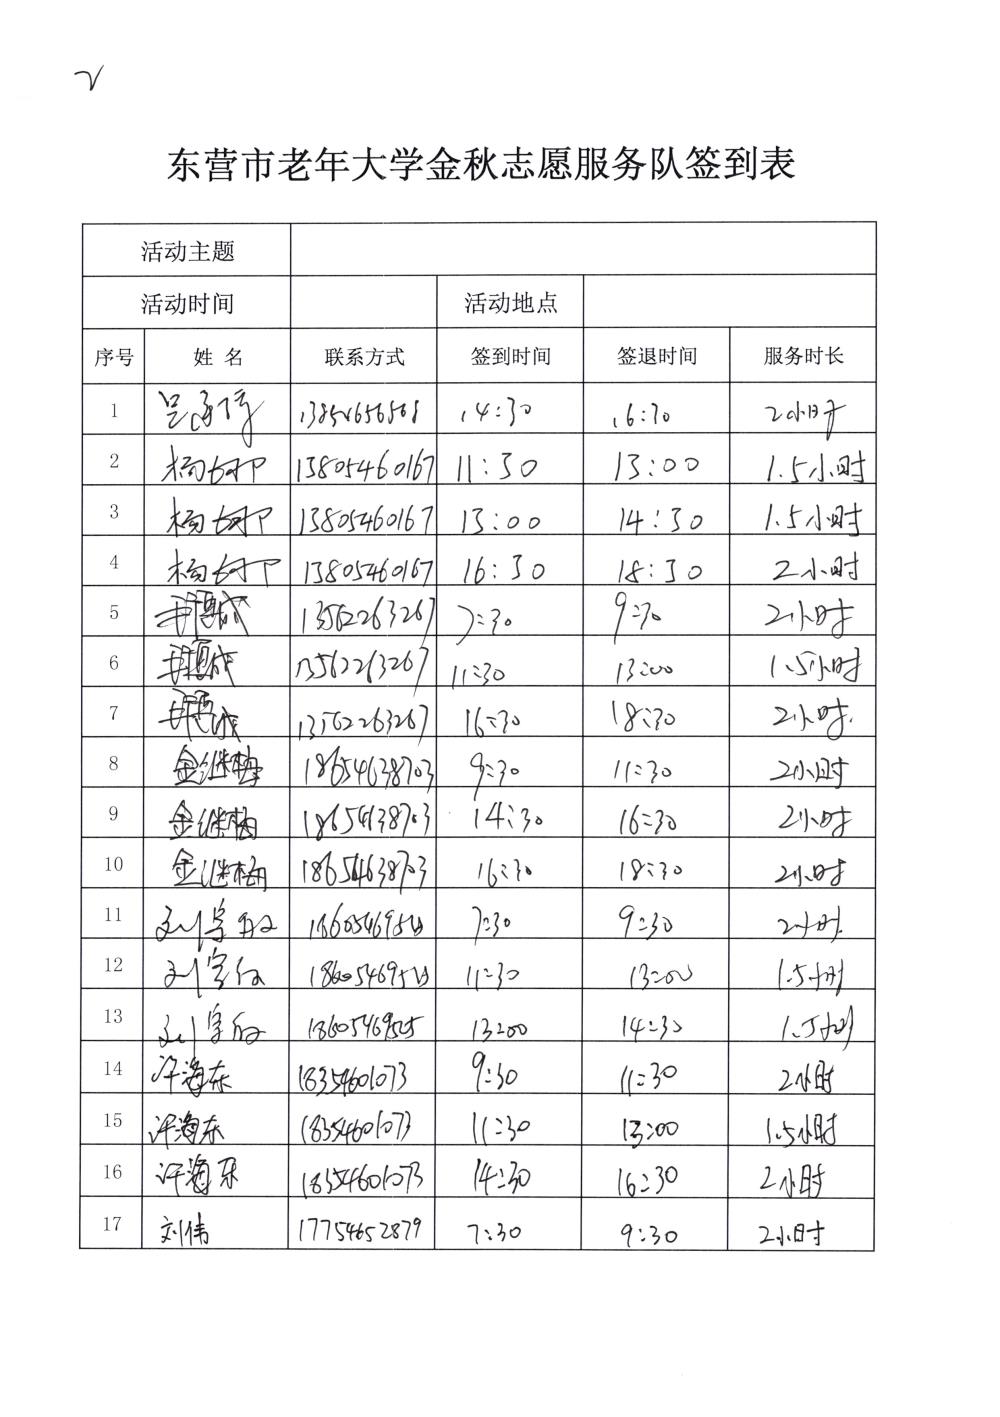 东营市老年大学金秋志愿服务队签到表
活动主题
活动时间 活动地点
序号 姓 名 联系方式 签到时间 签退时间 服务时长
1 14:30 16:30 2小时
2 杨树卫 13805460167 11:30 13:00 1.5小时
3 杨树卫 13805460167 13:00 14:30 1.5小时
4 杨树卫 13805460167 16:30 18:30 2小时
5 13562263267 7:30 9:30 2小时
6 13562263267 11:30 13:00 1.5小时
7 13562263267 16:30 18:30 2小时
8 金继梅 18654638703 9:30 11:30 2小时
9 金继梅 18654638703 14:30 16:30 2小时
10 金继梅 18654638703 16:30 18:30 2小时
11 7:30 9:30 2小时
12 11:30 13:00 1.5小时
13 13:00 14:30 1.5小时
14 许海东 18354601073 9:30 11:30 2小时
15 许海东 18354601073 11:30 13:00 1.5小时
16 许海东 18354601073 14:30 16:30 2小时
17 刘伟 17754652879 7:30 9:30 2小时